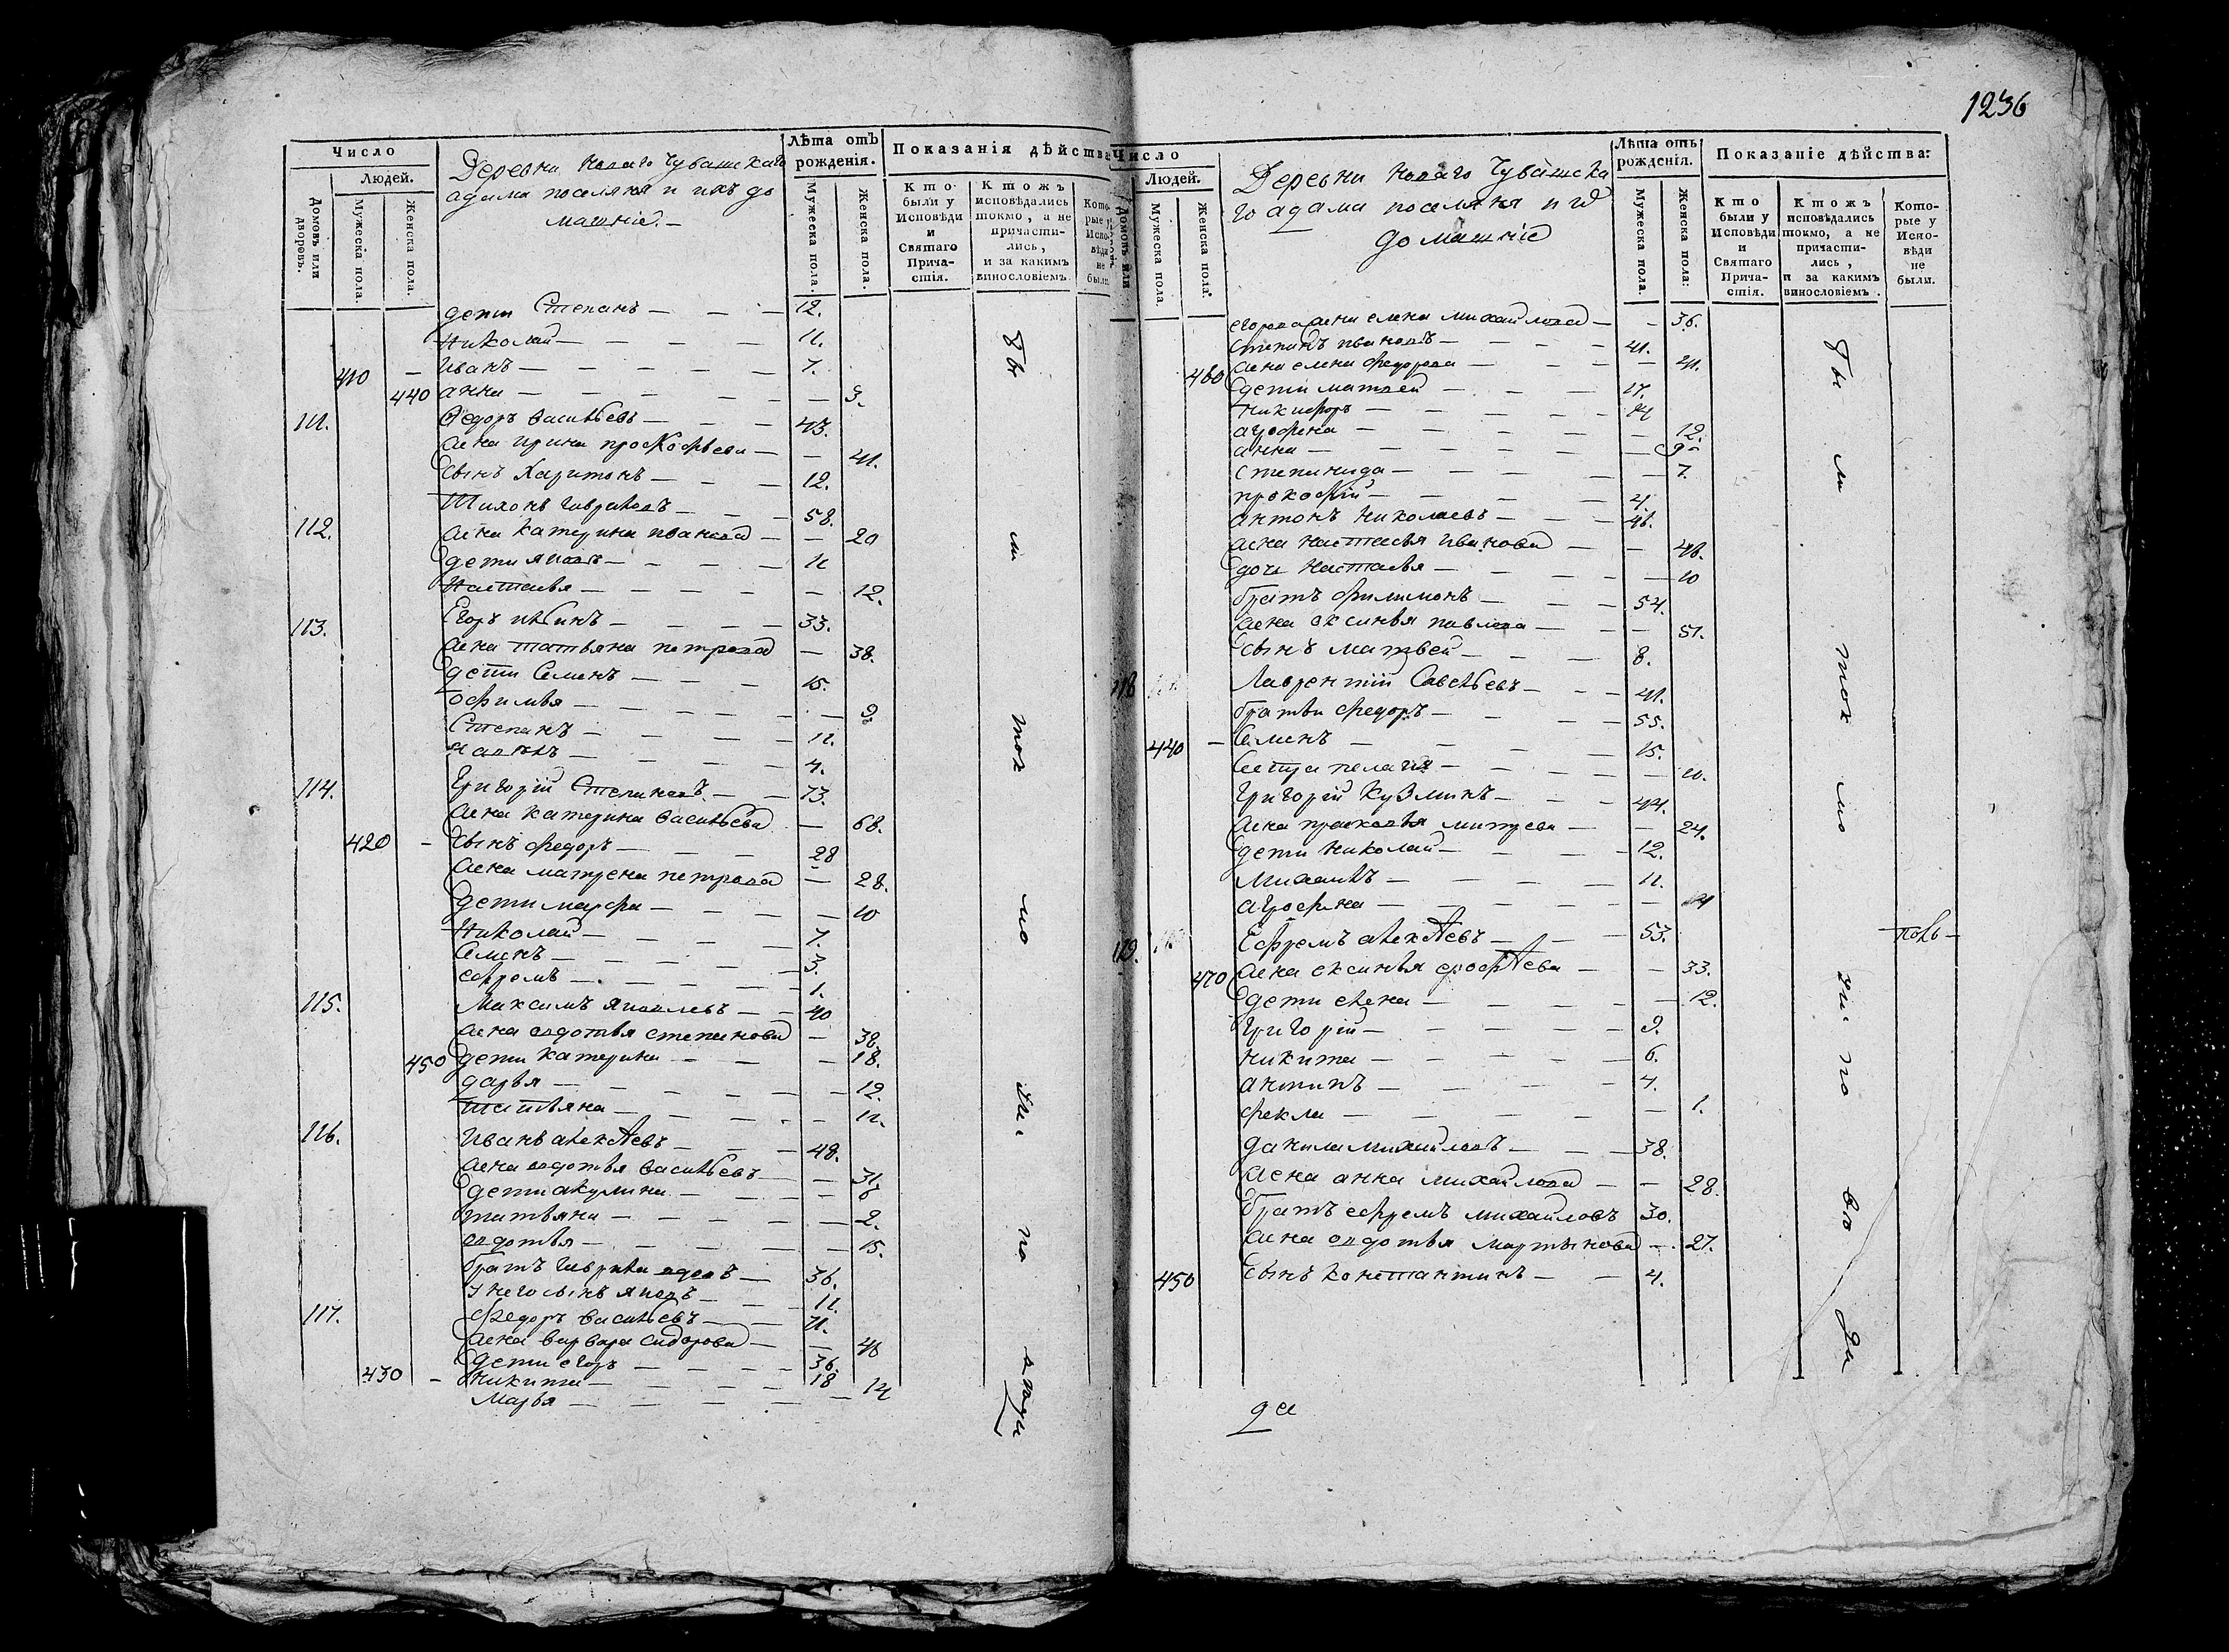 1236
Число
Людей.
Домовъ или дворовъ.
Мужеска пола.
Женска пола.
Деревни Новаго Чувашскаго
адама поселяня и ихъ до
машніе. —
Лѣта отъ рожденія.
Мужеска пола.
Женска пола.
Показанія дѣйства
Кто были у Исповѣди и Святаго Причастія.
Ктожъ исповѣдались токмо, а не причастились, и за какимъ винословіемъ.
Которые у Исповѣди не были.
дети Степанъ — 12.
Николай — 11.
410 — Иванъ — 7.
440 анна — 3.
111. Федоръ Васильевъ — 43.
жена ирина прокофьева — 41.
сынъ Харитонъ — 12.
112. Тихонъ Гавриловъ — 58.
жена катерина иванова — 20
дети яковъ — 11
Настасья — 12.
113. Егоръ ильинъ — 33.
жена татьяна петрова — 38.
дети Семенъ — 15.
офимья — 9
Степанъ — 11.
4.
114. Григорій Степановъ — 73.
жена катерина васильева — 68.
420 — сынъ федоръ — 28
жена матрена петрова — 28.
дети марфа — 10
Николай — 7.
Семенъ — 3.
ефремъ — 1.
115. Максимъ яковлевъ — 40
жена авдотья степанова — 38.
450 дети катерина — 18.
дарья — 12.
татьяна — 11.
116. Иванъ алексѣевъ — 48.
жена авдотья васильевъ — 31.
дети акулина — 6
татьяна — 2.
авдотья — 15.
братъ Гаврила — 36.
у него сынъ яковъ — 11.
117. Федоръ васильевъ — 71.
жена варвара сидорова — 46
дети егоръ — 36.
430 — никита — 18
Марья — 14
бы
ли
ток
мо
у
ис
по
Число
Людей.
Домовъ или
Мужеска пола.
Женска пола.
Деревни Новаго Чувашска
го адама поселяня и ид
домашніе
Лѣта отъ рожденія.
Мужеска пола.
Женска пола.
Показаніе дѣйства:
Кто были у Исповѣди и Святаго Причастія.
Ктожъ исповѣдались токмо, а не причастились, и за какимъ винословіемъ.
Которые у Исповѣди не были.
егорова жена елена михайлова — 36.
Степанъ ивановъ — 41.
460 жена елена федорова — 41.
дети матвей — 17.
никифоръ — 14
агрофена — 12.
анна — 9
степанида — 7.
прокофій — 4.
антонъ николаевъ — 46.
жена настасья иванова — 46.
дочь настасья — 10
братъ филимонъ — 54.
жена аксинья павлова — 51.
сынъ матвей — 8.
118 Лаврентій Савельевъ — 41.
братья федоръ — 55.
440 — Семенъ — 15.
сестра пелагия — 10.
Григорій Кузминъ — 44.
жена прасковья митрева — 24.
дети николай — 12.
михаилъ — 11.
агрофена — 14
119. Ефремъ алексѣевъ — 53.
470 жена аксинья ерофѣева — 33.
дети елена — 12.
Григорій — 9.
никита — 6.
антипъ — 4.
фекла — 1.
данила михайловъ — 38.
жена анна михайлова — 28.
братъ ефремъ михайловъ 30.
жена авдотья мартынова — 27.
450 сынъ константинъ — 4.
бы
ли
ток
мо
у
ис
по